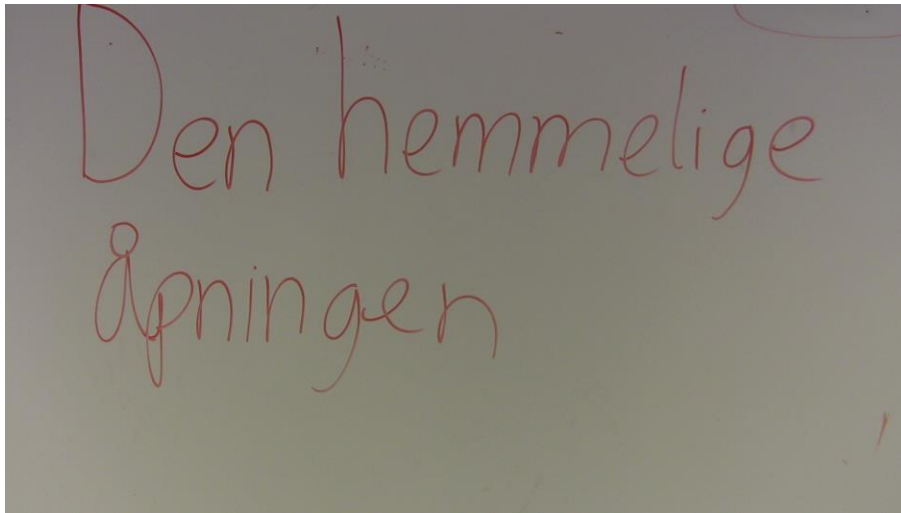 Den hemmelige
åpningen